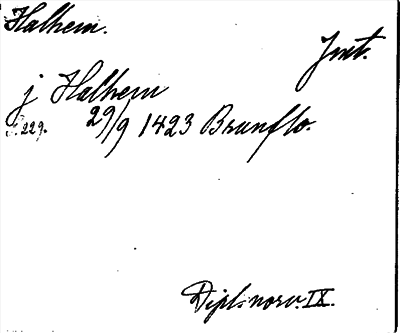 Halhem.
Jmt.
j Halhem
s. 229. 29/9 1423 Brunflo.
Dipl. norv. IX.